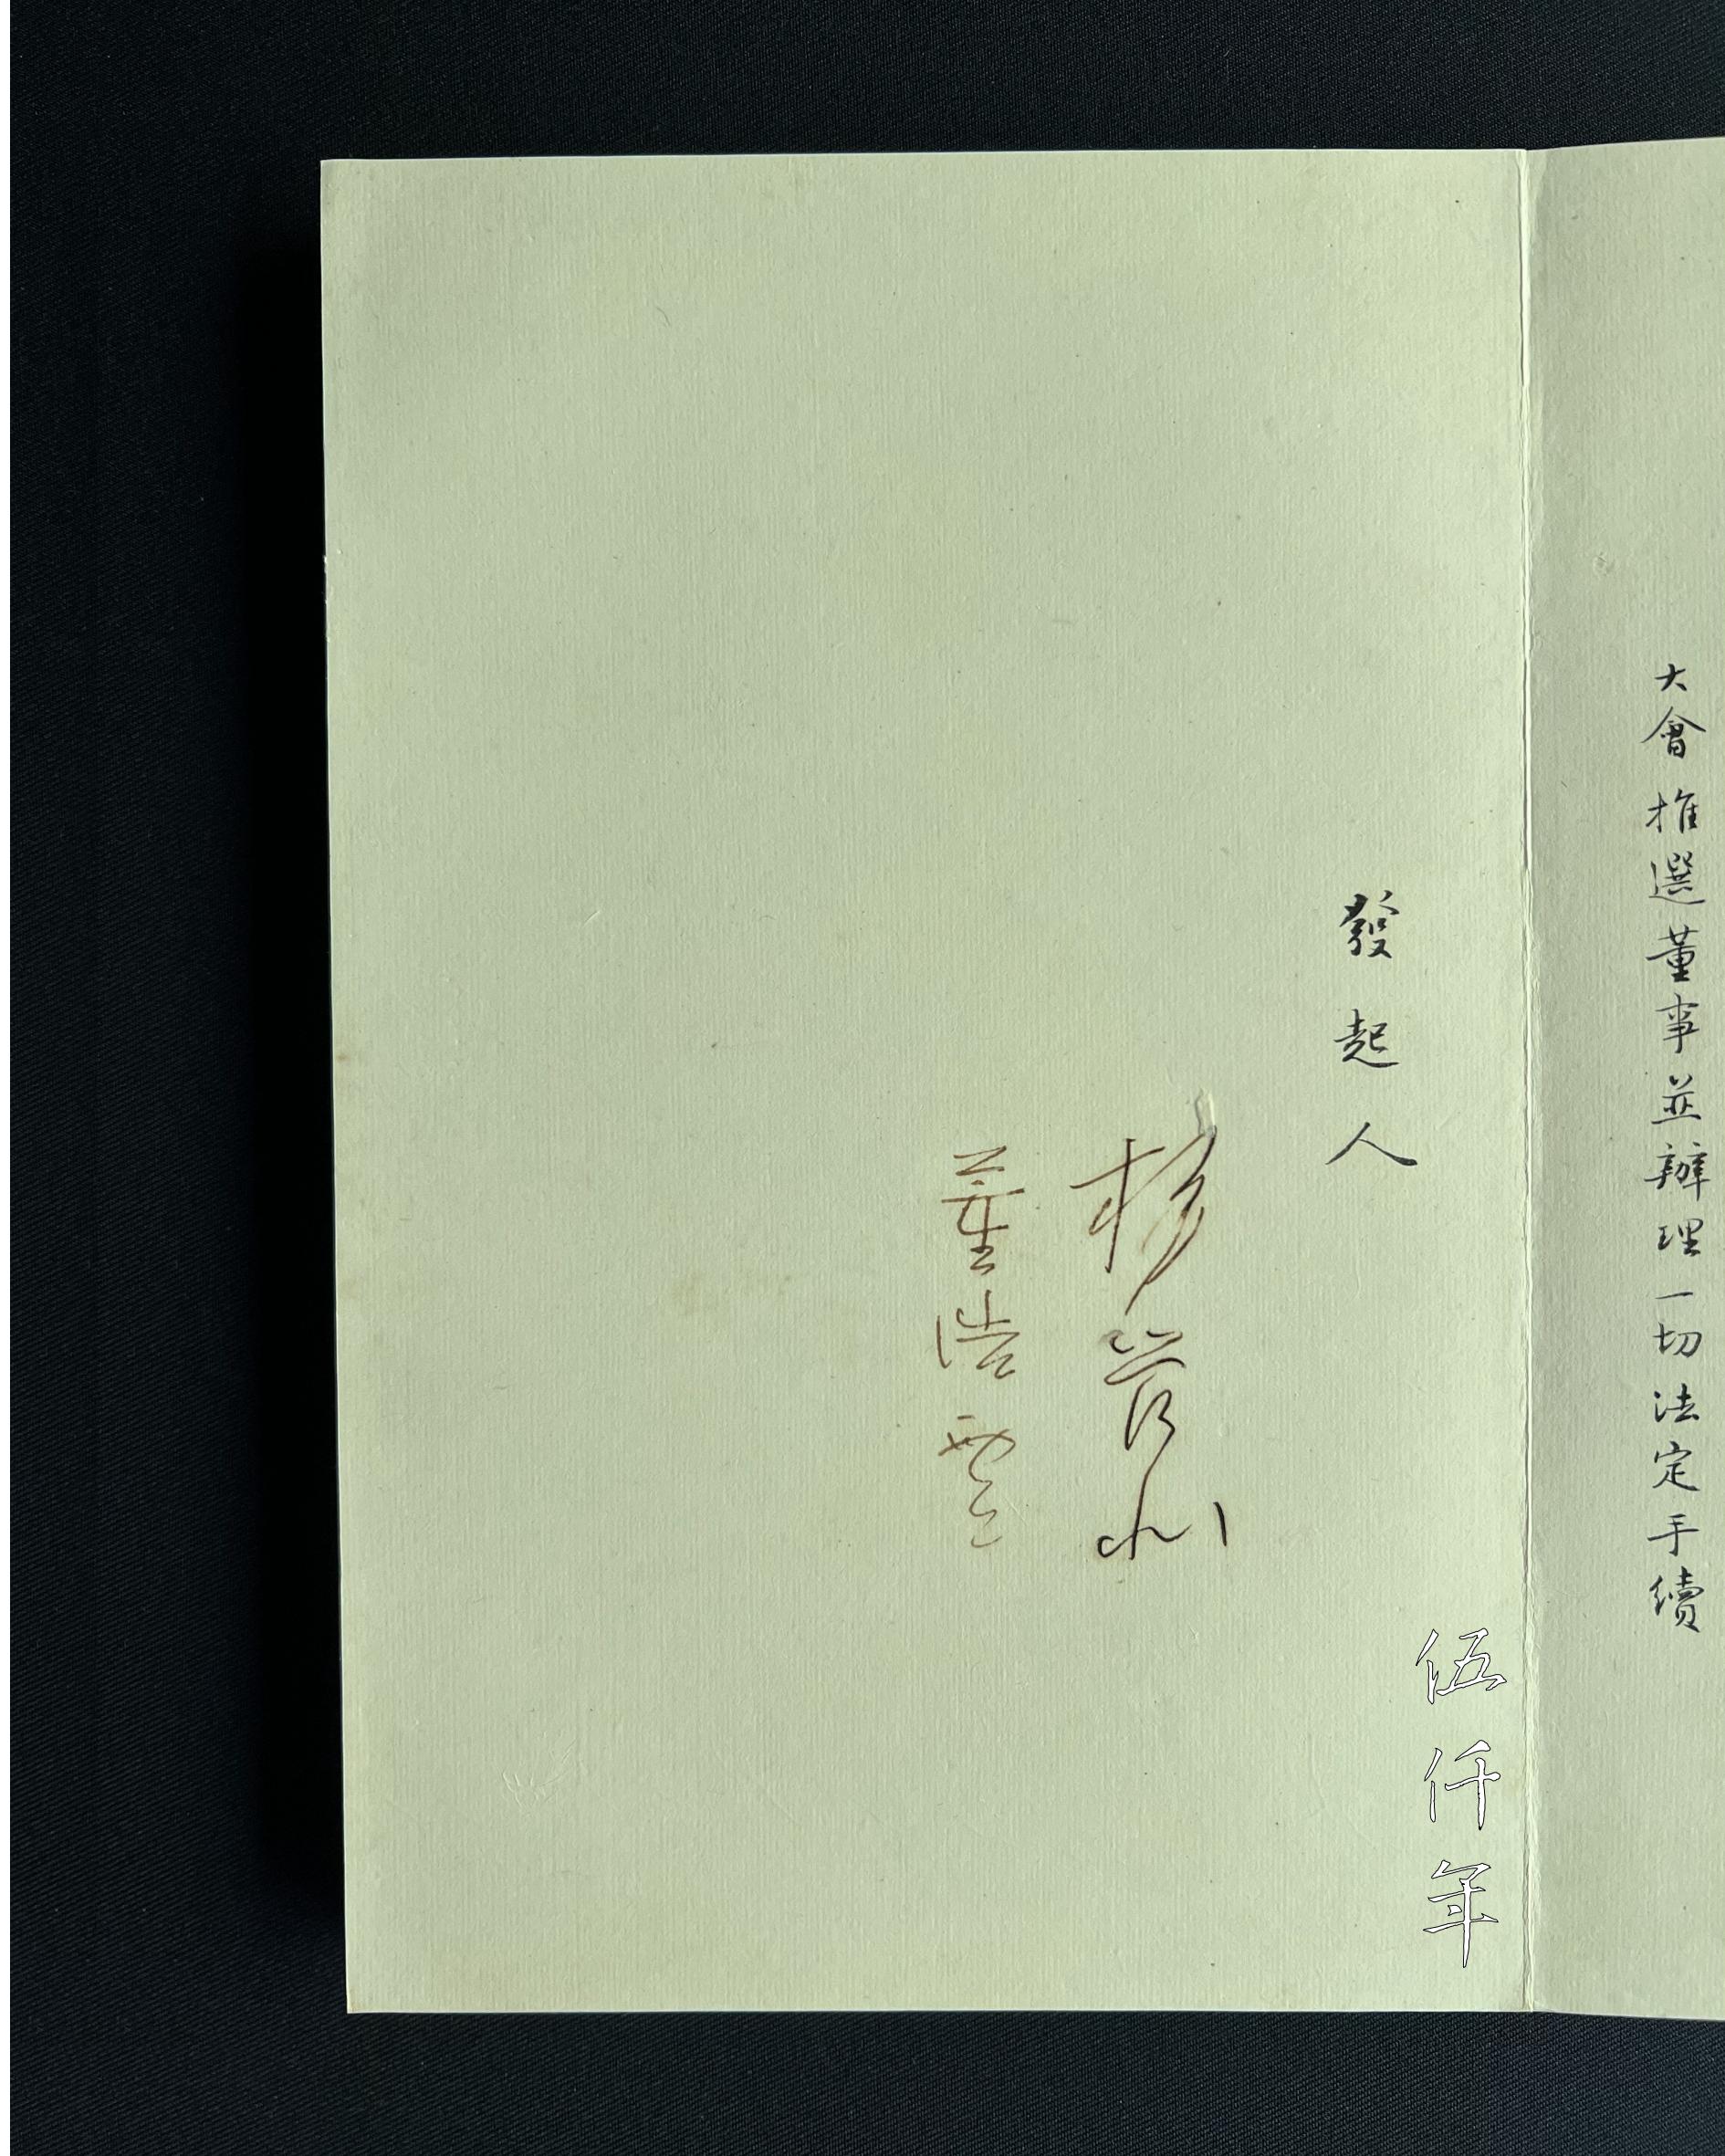 大會推選董事並辦理一切法定手續
發起人
楊管北
董浩雲
伍仟年